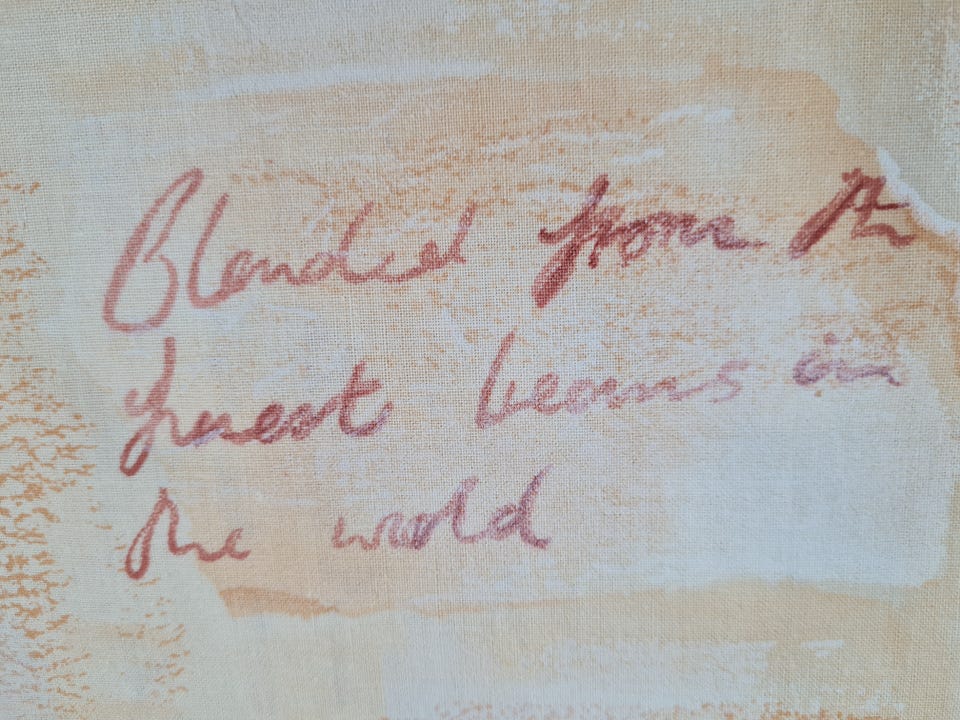 Blended from the
finest beans in
the world